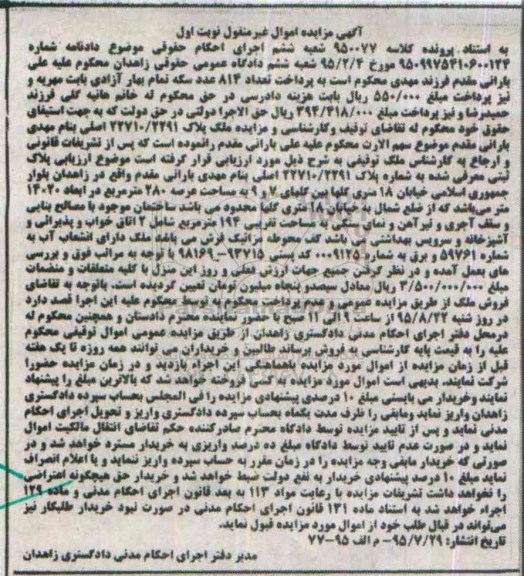 آگهی مزایده اموال غیرمنقول نوبت اول
به استناد پرونده کلاسه ۹۵۰۰۷۷ شعبه ششم اجرای احکام حقوقی موضوع دادنامه شماره
۹۵۰۹۹۷۵۴۱۰۶۰۰۱۲۴ مورخ ۹۵/۲/۴ شعبه ششم دادگاه عمومی حقوقی زاهدان محکوم علیه علی
بارانی مقدم فرزند مهدی محکوم است به پرداخت تعداد ۸۱۴ عدد سکه تمام بهار آزادی بابت مهریه و
نیز پرداخت مبلغ ۵۵۰/۰۰۰ ریال بابت هزینه دادرسی در حق محکوم له خانم هانیه گلی فرزند
حمیدرضا و نیز پرداخت مبلغ ۳۹۴/۴۱۸/۰۰۰ ریال حق الاجرا دولتی در حق دولت که به جهت استیفای
حقوق خود محکوم له تقاضای توقیف وکارشناسی و مزایده ملک پلاک ۲۲۷۱۰/۲۲۹۱ اصلی بنام مهدی
بارانی مقدم موضوع سهم الارث محکوم علیه علی بارانی مقدم رانموده است که پس از تشریفات قانونی
و ارجاع به کارشناس ملک توقیفی به شرح ذیل مورد ارزیابی قرار گرفته است موضوع ارزیابی پلاک
ثبتی معرفی شده به شماره پلاک ۲۲۷۱۰/۲۲۹۱ اصلی بنام مهدی بارانی مقدم واقع در زاهدان بلوار
جمهوری اسلامی خیابان ۱۸ متری گلها بین گلهای ۷ و ۹ به مساحت عرصه ۲۸۰ مترمربع در ابعاد ۲۰*۱۴
متر می‌باشد که از ضلع شمال به خیابان ۱۸ متری گلها محدود می باشد ساختمان موجود با مصالح بنایی
و سقف آجری و تیرآهن و نمای سنگی به مساحت تقریبی ۱۹۴ مترمربع شامل ۲ اتاق خواب و پذیرائی و
آشپزخانه و سرویس بهداشتی می باشد کف محوطه موزائیک فرش می باشد ملک دارای انشعاب آب به
شماره ۵۹۷۶۱ و برق به شماره ۰۰۰۹۱۲۵ کد پستی ۹۳۷۱۵-۹۸۱۶۹ با توجه به مراتب فوق و بررسی
های بعمل آمده و در نظر گرفتن جمیع جهات ارزش فعلی و روز این منزل با کلیه متعلقات و منضمات
مبلغ ۳/۵۰۰/۰۰۰/۰۰۰ ریال معادل سیصدو پنجاه میلیون تومان تعیین گردیده است. باتوجه به تقاضای
فروش ملک از طریق مزایده عمومی و عدم پرداخت محکوم به توسط محکوم علیه این اجرا قصد دارد
در روز شنبه ۹۵/۸/۲۲ از ساعت ۹ الی ۱۱ صبح با حضور نماینده محترم دادستان و همچنین محکوم له
درمحل دفتر اجرای احکام مدنی دادگستری زاهدان از طریق مزایده عمومی اموال توقیفی محکوم
علیه را به قیمت پایه کارشناسی به فروش برساند طالبین و خریداران می توانند همه روزه تا یک هفته
قبل از زمان مزایده از اموال مورد مزایده باهماهنگی این اجرام بازدید و در زمان مزایده حضورا
شرکت نمایند. بدیهی است اموال مورد مزایده به کسی فروخته خواهد شد که بالاترین مبلغ را پیشنهاد
نمایند وخریدار می بایستی مبلغ ۱۰ درصدی پیشنهادی مزایده را فی المجلس بحساب سپرده دادگستری
زاهدان واریز نماید ومابقی را ظرف مدت یکماه بحساب سپرده دادگستری واریز و تحویل اجرای احکام
مدنی نماید و پس از تایید مزایده توسط دادگاه محترم صادرکننده حکم تقاضای انتقال مالکیت اموال
نماید و در صورت عدم تایید توسط دادگاه مبلغ ده درصد واریزی به خریدار مسترد خواهد شد و در
صورتی که خریدار مابقی وجه مزایده را در زمان مقرر به حساب سپرده واریز ننماید و یا اعلام انصراف
نماید مبلغ ۱۰ درصد پیشنهادی خریدار به نفع دولت ضبط خواهد شد و خریدار حق هیچگونه اعتراضی
را نخواهد داشت تشریفات مزایده با رعایت مواد ۱۱۳ به بعد قانون اجرای احکام مدنی و ماده ۱۲۹
اجراء خواهد شد به استناد ماده ۱۳۱ قانون اجرای احکام مدنی در صورت نبود خریدار طلبکار نیز
می‌تواند در قبال طلب خود از اموال مورد مزایده قبول نماید.
تاریخ انتشار: ۹۵/۷/۲۹- م الف ۹۵-۷۷
مدیر دفتر اجرای احکام مدنی دادگستری زاهدان